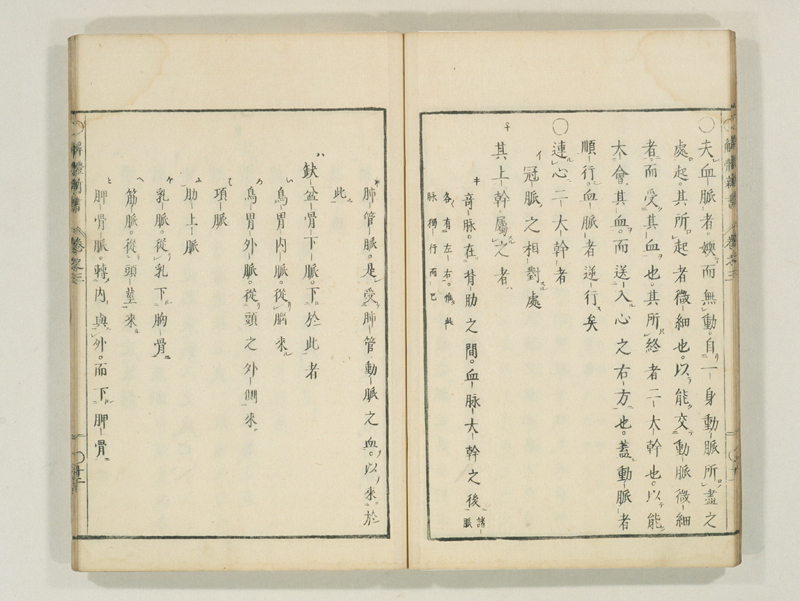 〇夫血脈者嫩而無動。自一身動脈所盡之
處起。其所起者微細也。以能交動脈微細
者。而受其血也。其所終者二大幹也。以能
大會其血。而送入心之右方也。蓋動脈者
順行。血脈者逆行矣
〇連心二大幹者
イ 冠脈之相對處
其上幹屬之者
キ 奇脈。在背肋之間。血脈大幹之後 諸脈
各有左右。惟此
脉獨行而已
肺管脈。是受肺管動脈之血。以來於
此
ハ 缺盆骨下脈。下於此者
烏胃内脈。從腦來
烏胃外脈。從頭之外側來
項脈
肋上脈
乳脈。從乳下胸骨
筋脈。從頭莖來
胛骨脈。轉内與外。而下胛骨
解體新書 卷之三